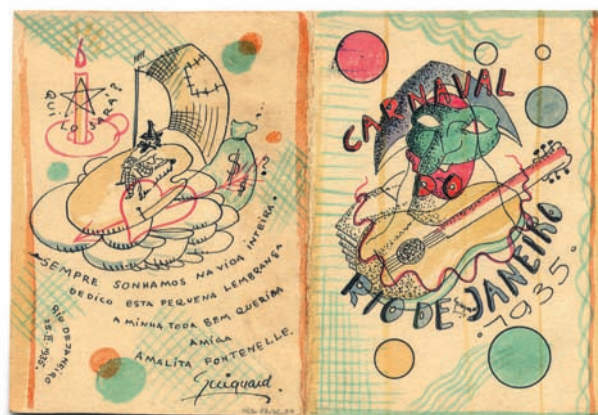 QUI LO SARÁ?
$
SEMPRE SONHAMOS NA VIDA INTEIRA.
DEDICO ESTA PEQUENA LEMBRANÇA
A MINHA TODA BEM QUERIDA
AMIGA
AMALITA FONTENELLE.
Guignard.
RIO DE JANEIRO
25.II.935.
CARNAVAL
DO
RIO DE JANEIRO
1935.